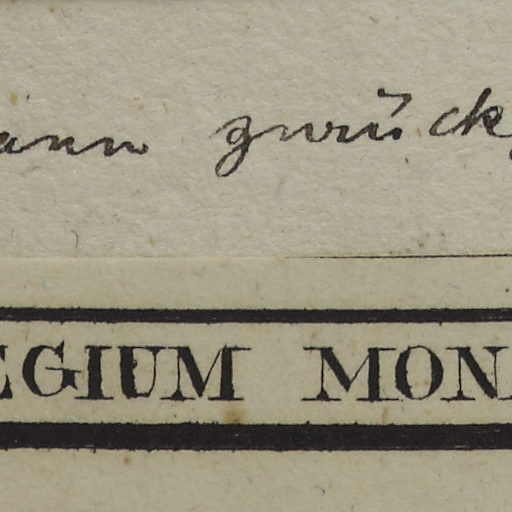 ann zurück
EGIUM MON